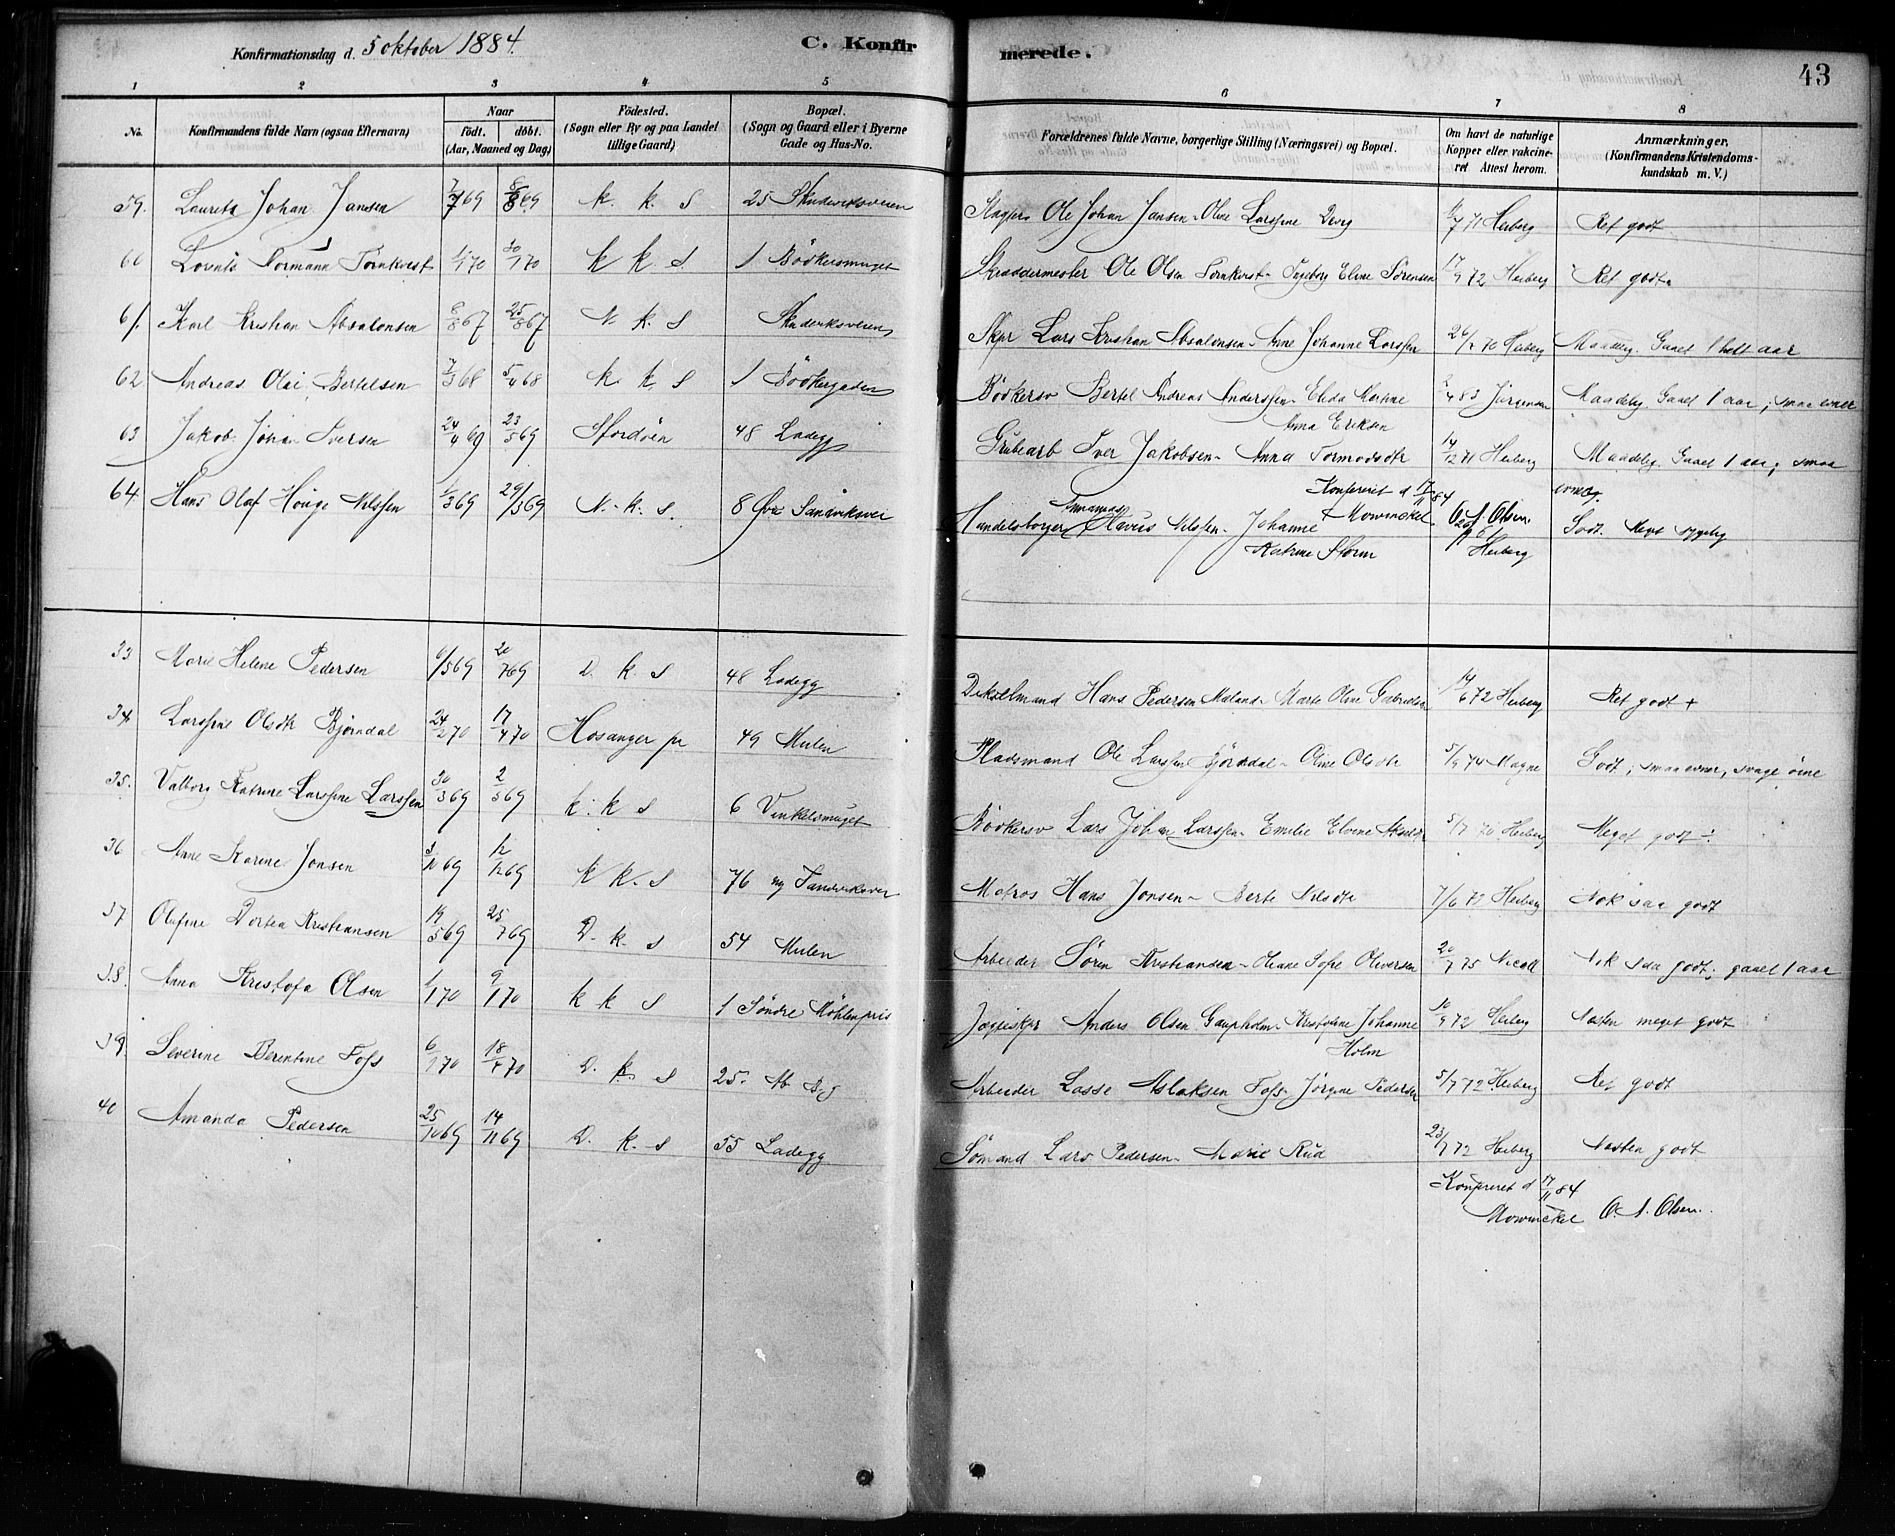 Konfirmationsdag d. 5 oktober 1884.
C. Konfirmerede.
43
1 2 3 4 5 6 7 8
No.
Konfirmandens fulde Navn (ogsaa Efternavn)
Naar
födt. döbt.
(Aar, Maaned og Dag)
Födested.
(Sogn eller By og paa Landet
tillige Gaard)
Bopæl.
(Sogn og Gaard eller i Byerne
Gade og Hus-No.
Forældrenes fulde Navne, borgerlige Stilling (Næringsvei) og Bopæl.
Om havt de naturlige
Kopper eller vakcine-
ret Attest herom.
Anmærkninger.
(Konfirmandens Kristendoms-
kundskab m. V.)
59. Laurits Johan Jansen 7/7 69 8/8 69 K. K. S 25 Skudeviksveien Ole Johan Jansen - Oline Larsine 71 Heiberg Ret godt
60 Normann Tornkvist 1/1 70 30/1 70 K K. S 1 Bödkersmuget Skræddermester Ole Olsen Tornkvist - Ingeborg Eline Sörensen 17/9 72 Heiberg Ret godt
61. Karl Kristian Absalonsen 8/8 67 25/8 67 N. K. S Skudeviksveien Skpr Lars Kristian Absalonsen - Anne Johanne Larssen Heiberg Maadelig. Gaaet 1 helt aar
62. Andreas Olai Bertelsen 7/3 68 5/4 68 K. K. S 1 Bödkergaden Bödkersv Bertel Andreas Anderssen - Elida Martine
Anna Eriksen 4 83 Jörgensen Maadelig. Gaaet 1 aar; smaa evner
63 Jakob Johan Iversen 24/4 69 23/5 69 48 Ladegg Grubearb Iver Jakobsen - Anna Tormodsdtr 14/12 71 Heiberg Maadelig. Gaaet 1 aar; smaa
evner.
Konfireret d 17/11 84
Mowinckel O. A. Olsen
64. Hans Olaf Houge Nilssen 1/3 69 29/3 69 N. K. S. 8 Øvre Sandviksvei Handelsborger Olavus Nilssen - Johanne
Katrine Storm Heiberg Godt. Meget sygelig
33 Marie Helene Pedersen 6/5 69 20/7 69 D. K. S 48 Ladegg Dekselmand Hans Pedersen Maland - Marte Oline Gabrielsen 14/6 72 Heiberg Ret godt +
34. Larssine Olsdtr Bjørndal 24/2 70 17/4 70 Hosanger pr 49 Mulen Pladsmand Ole Larssen Bjørndal - Oline Olsdtr 5/9 74 Magne Godt; smaa evner, svage öine
35. Valborg Katrine Larssine Larssen 30/3 69 2/5 69 K. K S 6 Vinkelsmuget Bödkersv Lars Johan Larssen - Emilie Elvine 5/7 70 Heiberg Meget godt ÷
36 Anne Karine Jonsen 3/11 69 12/12 69 K K. S 76 ny Sandviksvei Matros Hans Jonsen - Berte Nilsdtr 7/6 71 Heiberg Nok saa godt
37 Olufine Dortea Kristiansen 19/5 69 25/7 69 D. K. S 54 Mulen Arbeider Sören Kristiansen - Oliane Sofie Oliversen 20/7 75 Nicoll Nok saa godt; gaaet 1 aar
38. Anna Kristofa Olsen 1/1 70 9/1 70 K K S 1 Söndre Möhlenpris Jægtskpr Anders Olsen Gaupholm - Kristofine Johanne
Holm 10/9 72 Heiberg Næsten meget godt
39. Severine Berentine Foss 6/1 70 18/4 70 D. K. S 25. Arbeider Lasse Aslaksen Foss - Jörgine Pedersen 5/7 72 Heiberg Ret godt
40 Amanda Pedersen 25/10 69 14/11 69 D. K. S 55 Ladegg Sömand Lars Pedersen - Marie Rud 23/7 72 Heiberg Næsten godt
Konfireret d 17/11 84
Mowinckel O. A. Olsen.